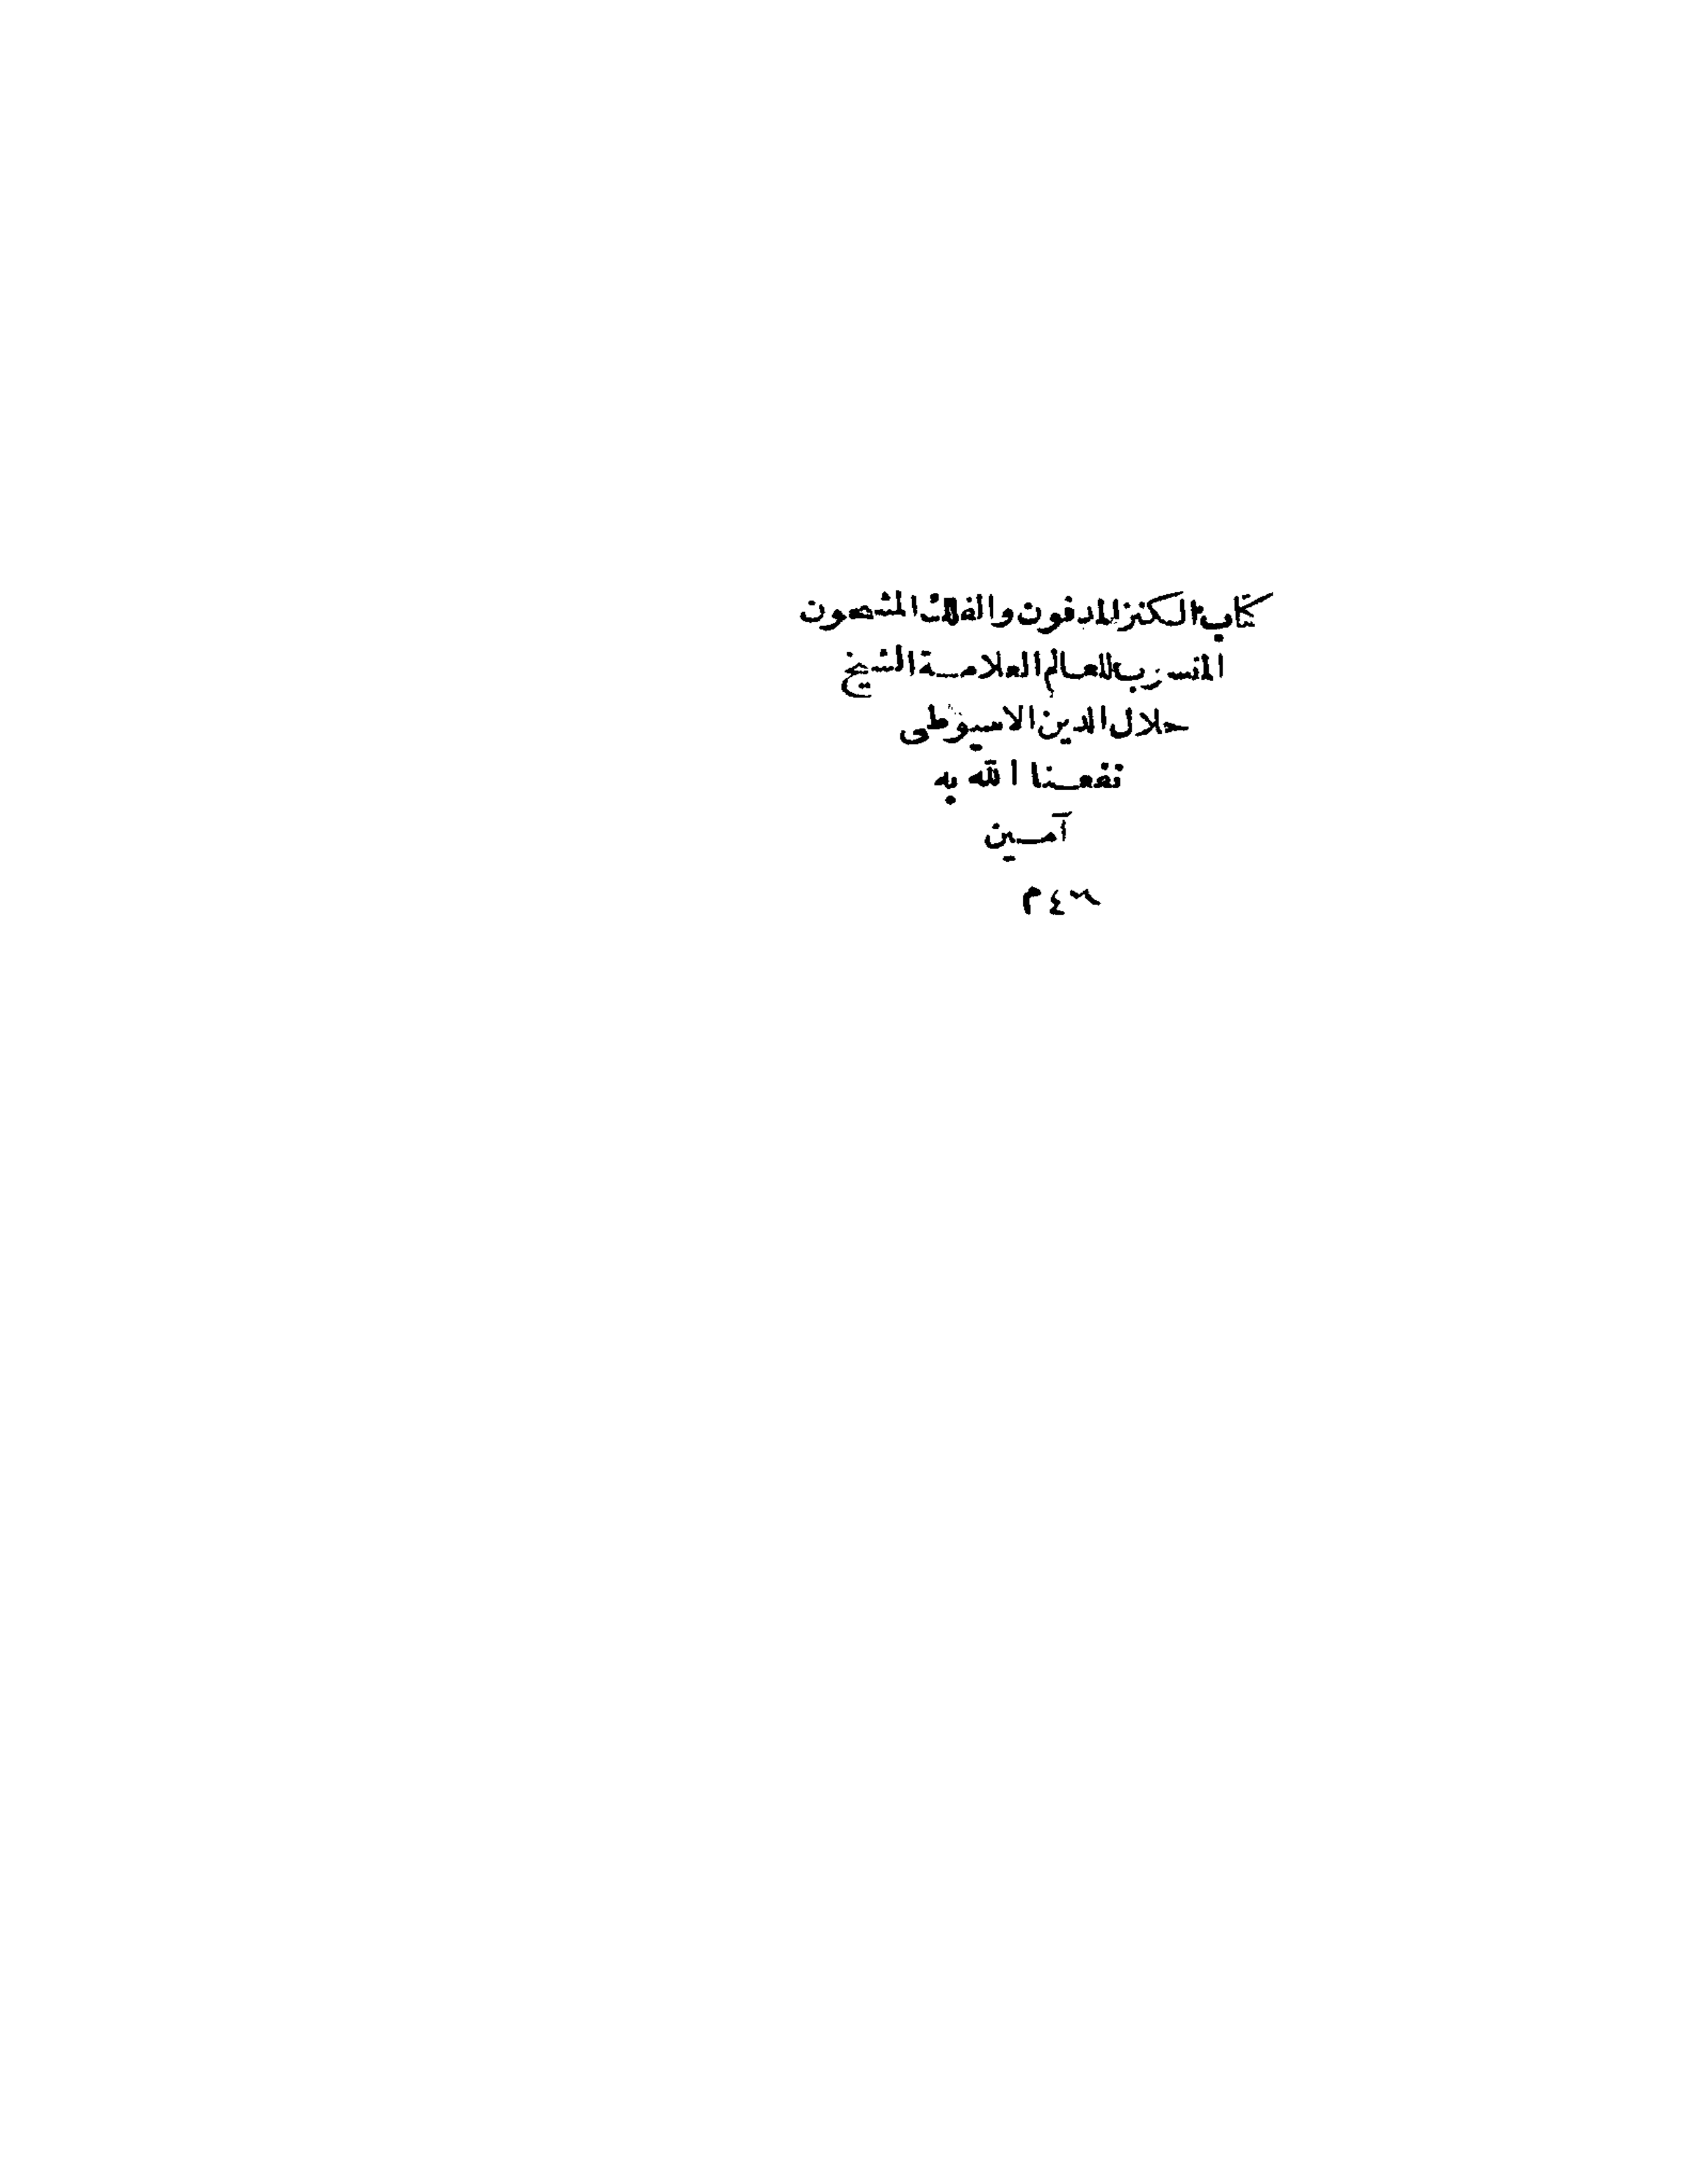 كتاب الكنز المدفون والفلك المشحون
المنسوب للعالم العلامة الشيخ
جلال الدين الاسيوطى
نفعنا الله به
آمين